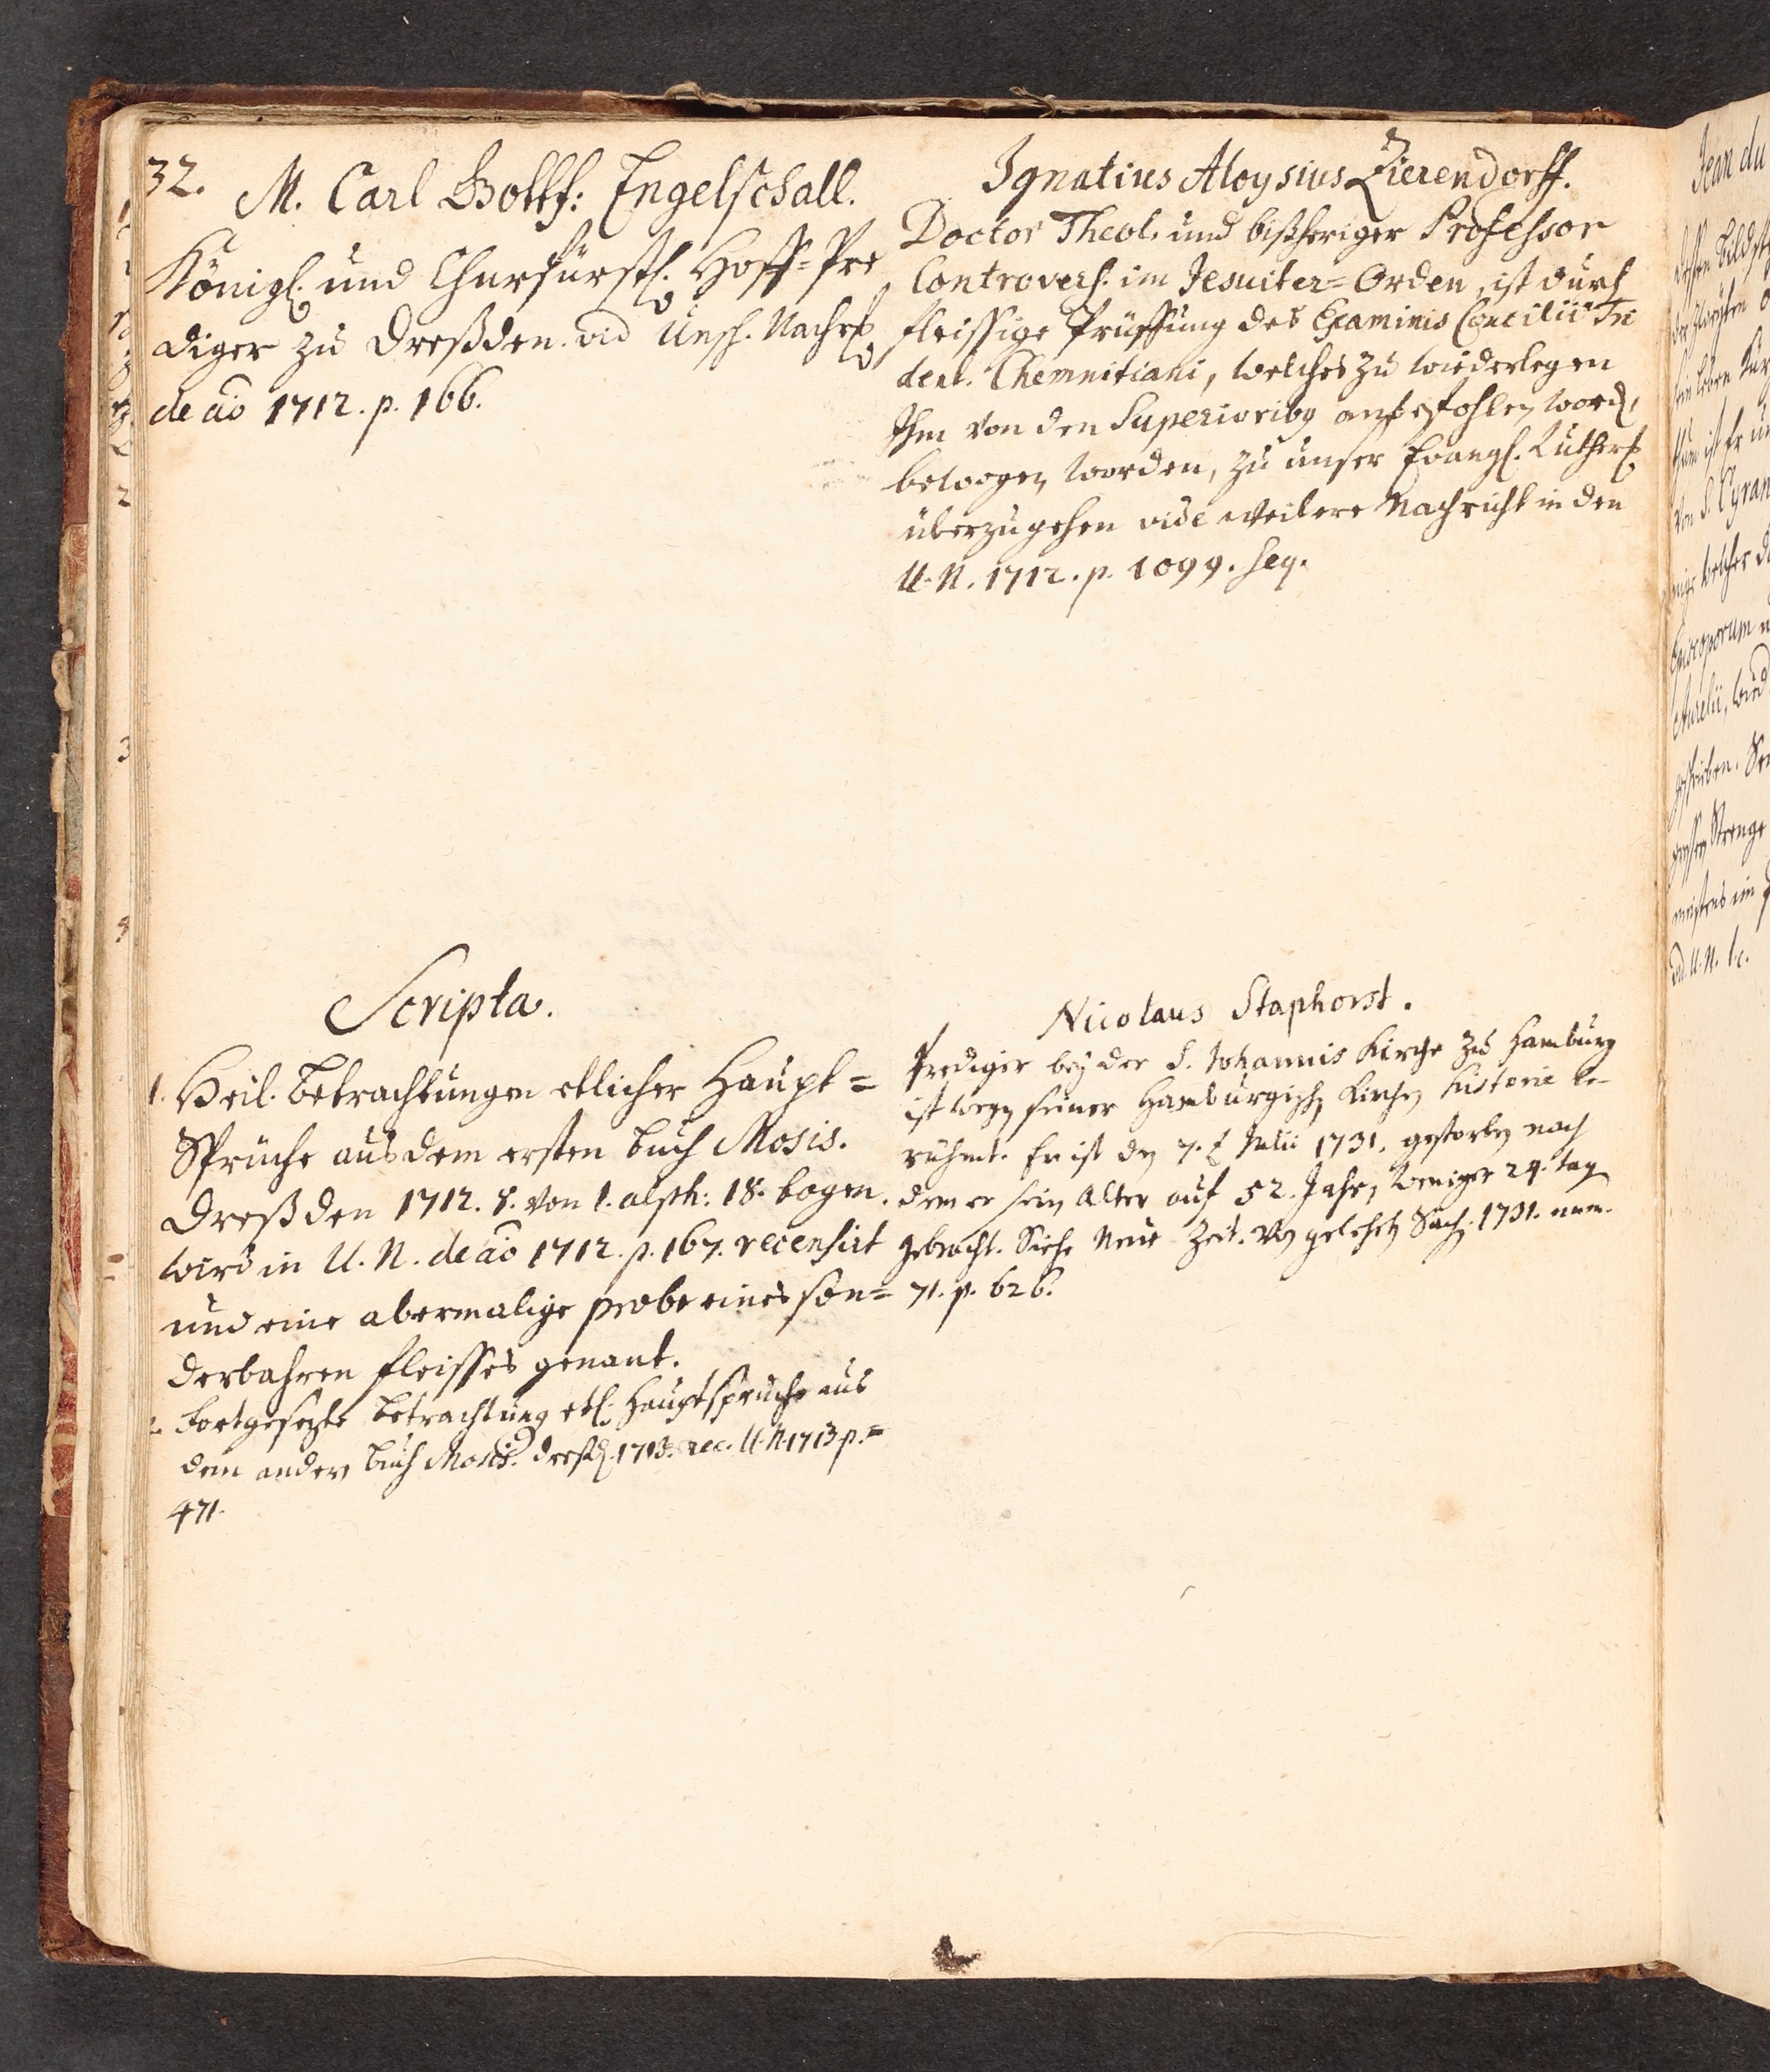 32.
M. Carl Gottf: Engelschall.
Königl. und Churfürstl. Hoff=Pre
diger zu Dreßden. vid Unsch. Nachr.
de aō 1712. p. 166.
Scripta.
1. Heil. Betrachtungen etlicher Haupt=
Sprüche aus dem ersten Buch Mosis.
Dreßden 1712. 8. von 1. alph: 18. bogen.
wird in U. N. de aō 1712. p. 167. recensirt
und eine abermalige probe eines son=
derbahren fleisses genant.
2. Fortgesezte Betrachtung etl: Hauptsprüche aus
dem andern Buch Mosis. Dreßd. 1713. rec. U. N. 1713 p.=
471.
Ignatius Aloysius Zierendorff.
Doctor Theol. und bißheriger Professor
Controvers. im Jesuiter=Orden, ist durch
fleissige Prüffung des Examinis Concilii Tri
dent. Chemnitiani, welches zu wiederlegen
Ihm von den Superiorib9 anbefohlen word,
bewogen worden, zu unser Evangl. Luther.
überzugehen vide weitere Nachricht in den
U. N. 1712. p. 1099. seq.
Nicolaus Staphorst.
Prediger bey der S. Johannis Kirche zu Hamburg
ist wegen seiner Hamburgischen Kirchen historie be-
rühmt. Er ist den 7. Julii 1731. gestorben nach
dem er sein Alter auf 52. Jahr, weniger 24. tag
gebracht. Siehe Neue Zeit. von gelehrten Sach. 1731. num.
71. p. 626.
Jean du
von S. Cyran
Episcoporum
Aurelii,
geschrieben.
Strenge
vid. U. N. l. c.